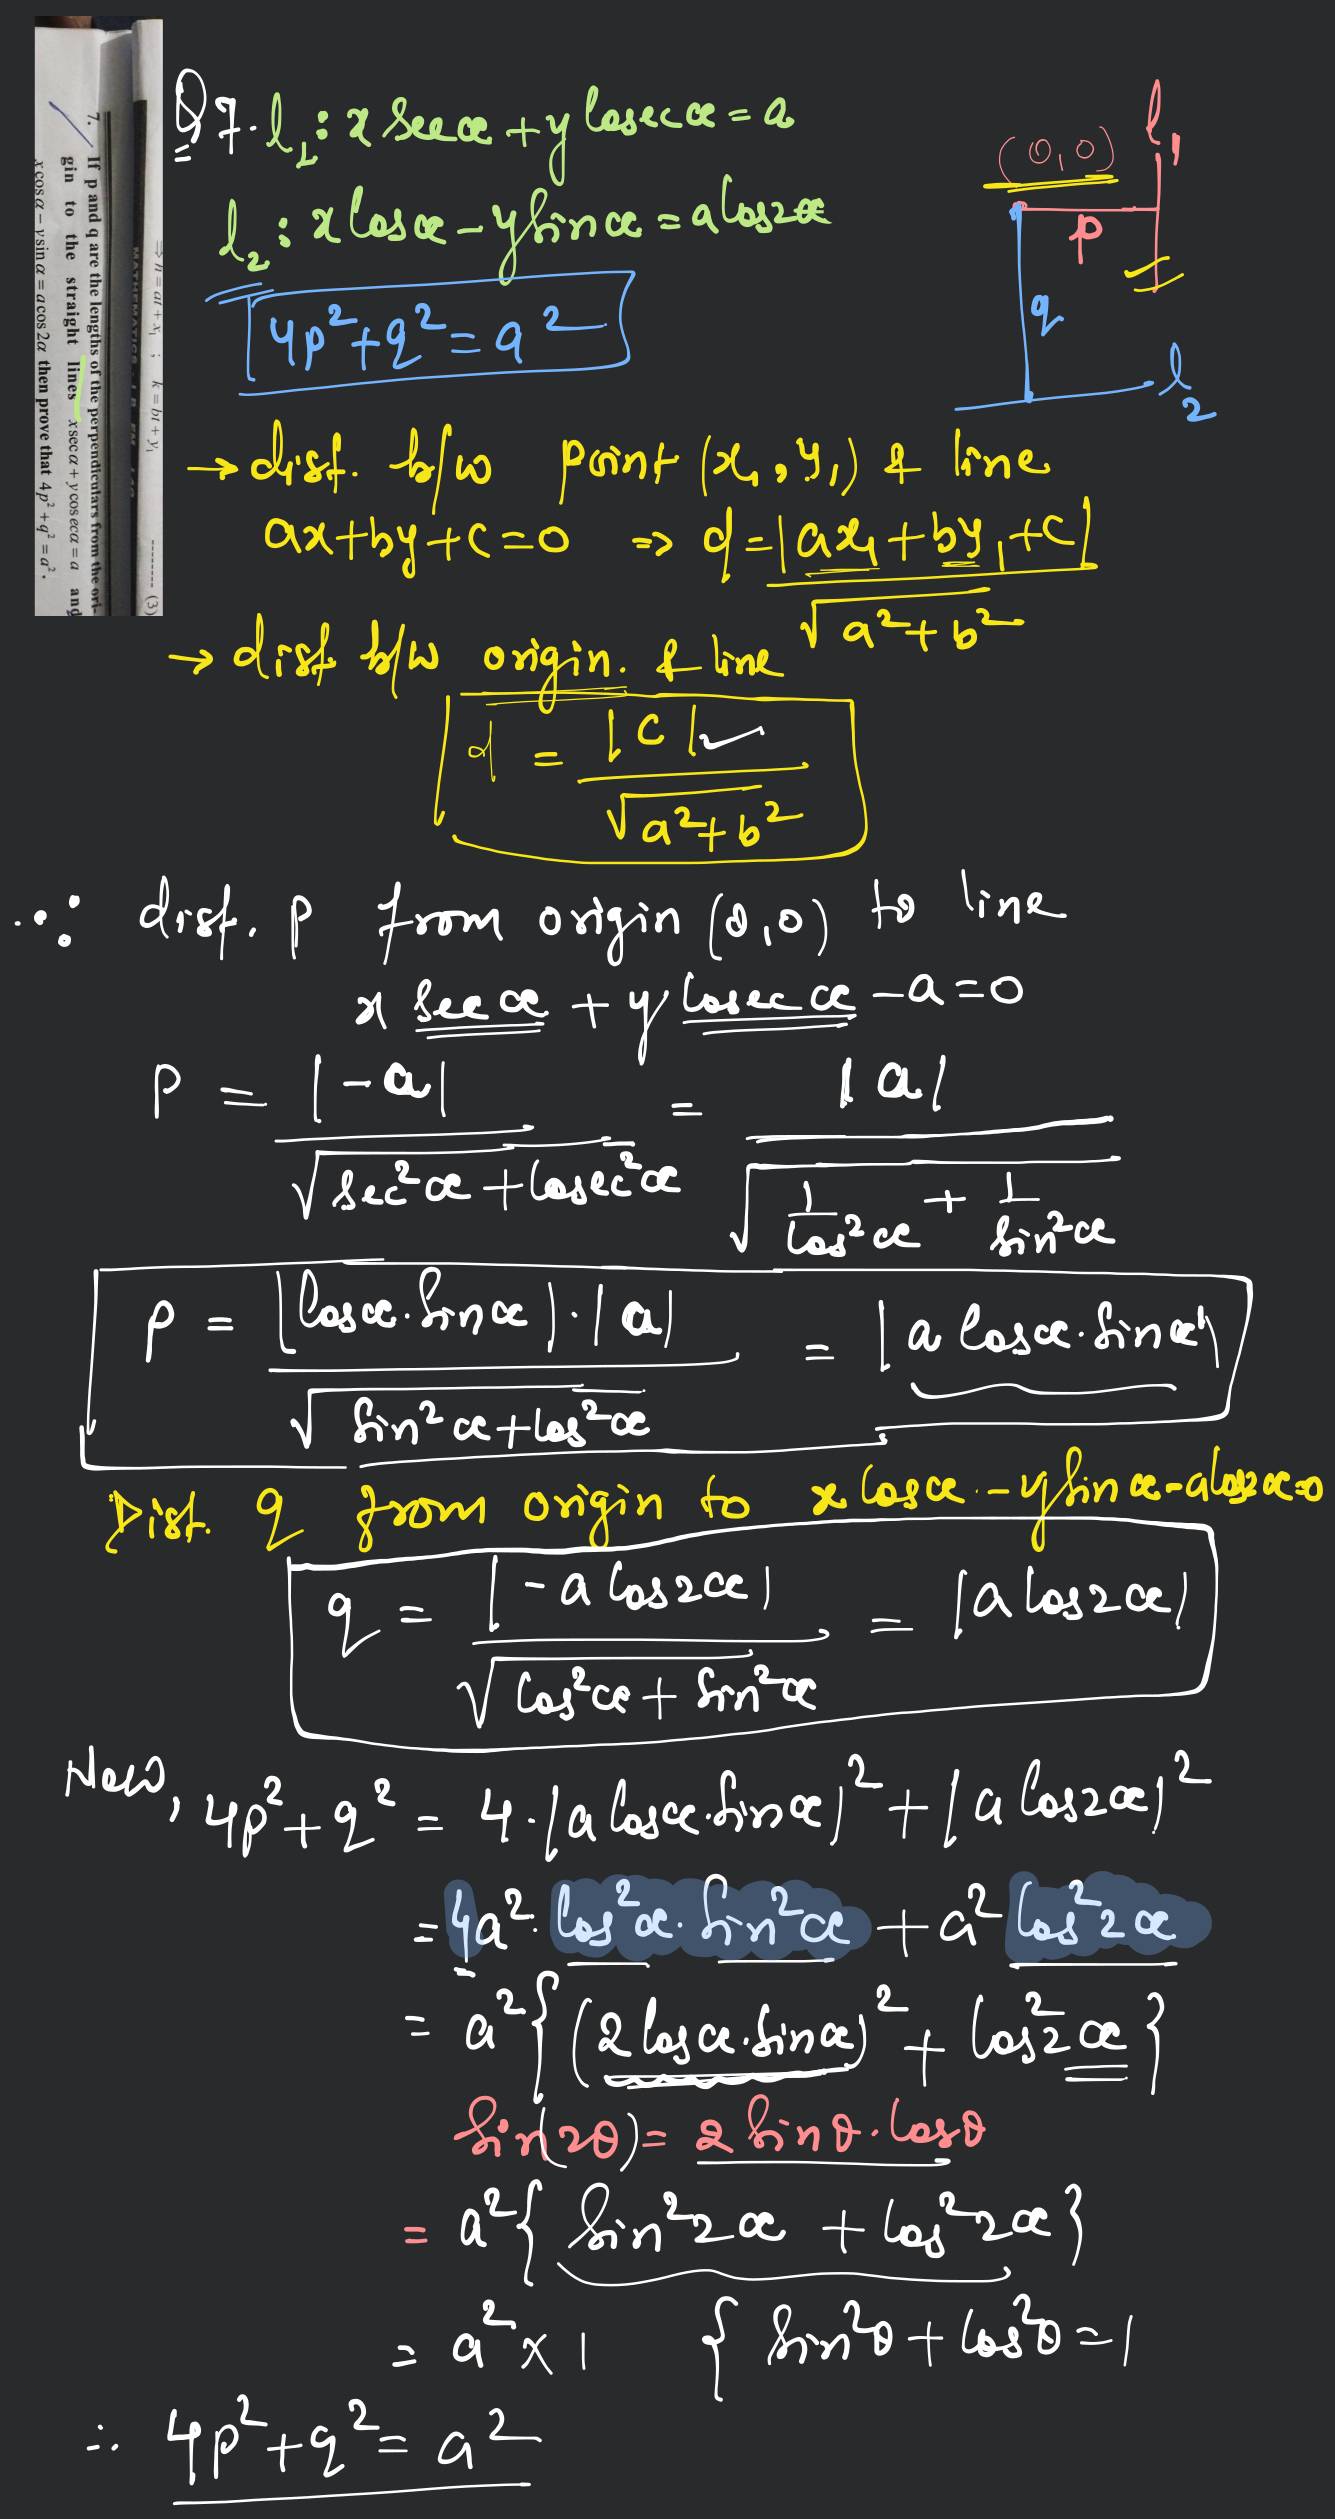 ⇒ h = at + x₁ ; k = bt + y₁ -------- (3)
7. If p and q are the lengths of the perpendiculars from the ori-
gin to the straight lines x sec α + y cosec α = a and
x cos α – y sin α = a cos 2α then prove that 4p² + q² = a².
Q7. l₁: x secα + y cosecα = a
l₂: x cosα - y sinα = a cos2α
4p² + q² = a²
(0,0)
l₁
p
q
l₂
→ dist. b/w point (x₁, y₁) & line
ax+by+c=0 ⇒ d = |ax₁+by₁+c| / √(a²+b²)
→ dist b/w origin. & line
d = |c| / √(a²+b²)
∵ dist. p from origin (0,0) to line
x secα + y cosecα - a = 0
p = |-a| / √(sec²α + cosec²α) = |a| / √(1/cos²α + 1/sin²α)
p = |cosα.sinα|.|a| / √(sin²α + cos²α) = |a cosα.sinα|
Dist. q from origin to x cosα - y sinα - a cos2α = 0
q = |-a cos2α| / √(cos²α + sin²α) = |a cos2α|
Now, 4p² + q² = 4.|a cosα.sinα|² + |a cos2α|²
= 4a².cos²α.sin²α + a² cos²2α
= a²{(2cosα.sinα)² + cos²2α}
sin(2θ) = 2 sinθ.cosθ
= a²{sin²2α + cos²2α}
= a² × 1 { sin²θ + cos²θ = 1
∴ 4p² + q² = a²